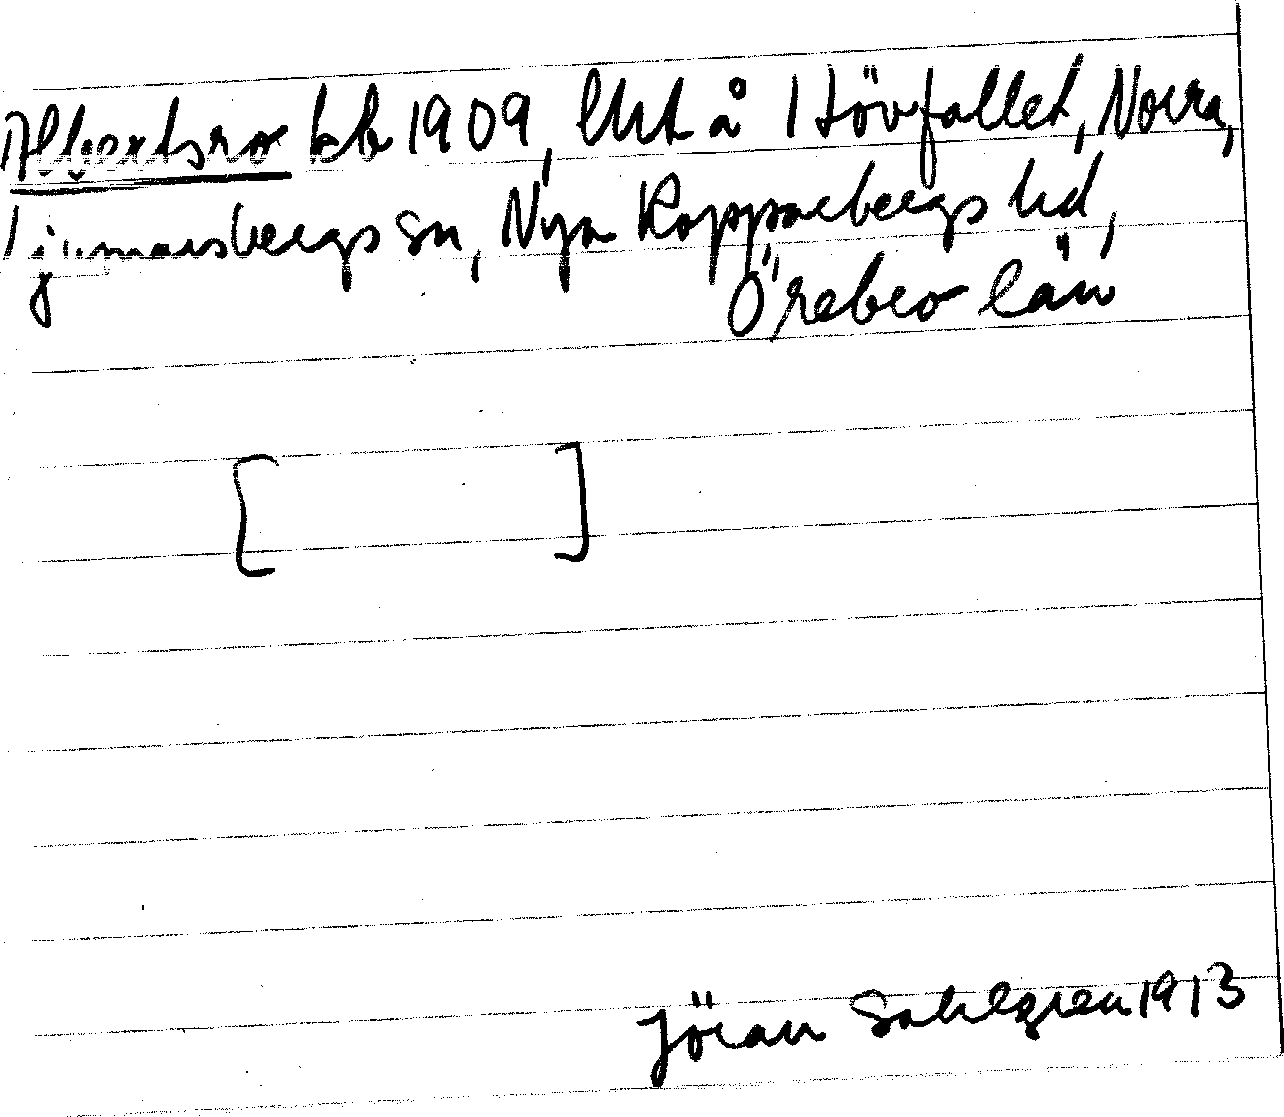 Albertsro kb 1909, lht å 1 Lövfallet, Norra,
Ljusnarsbergs sn, Nya Kopparbergs hd,
Örebro län
[ ]
Jöran Sahlgren 1913